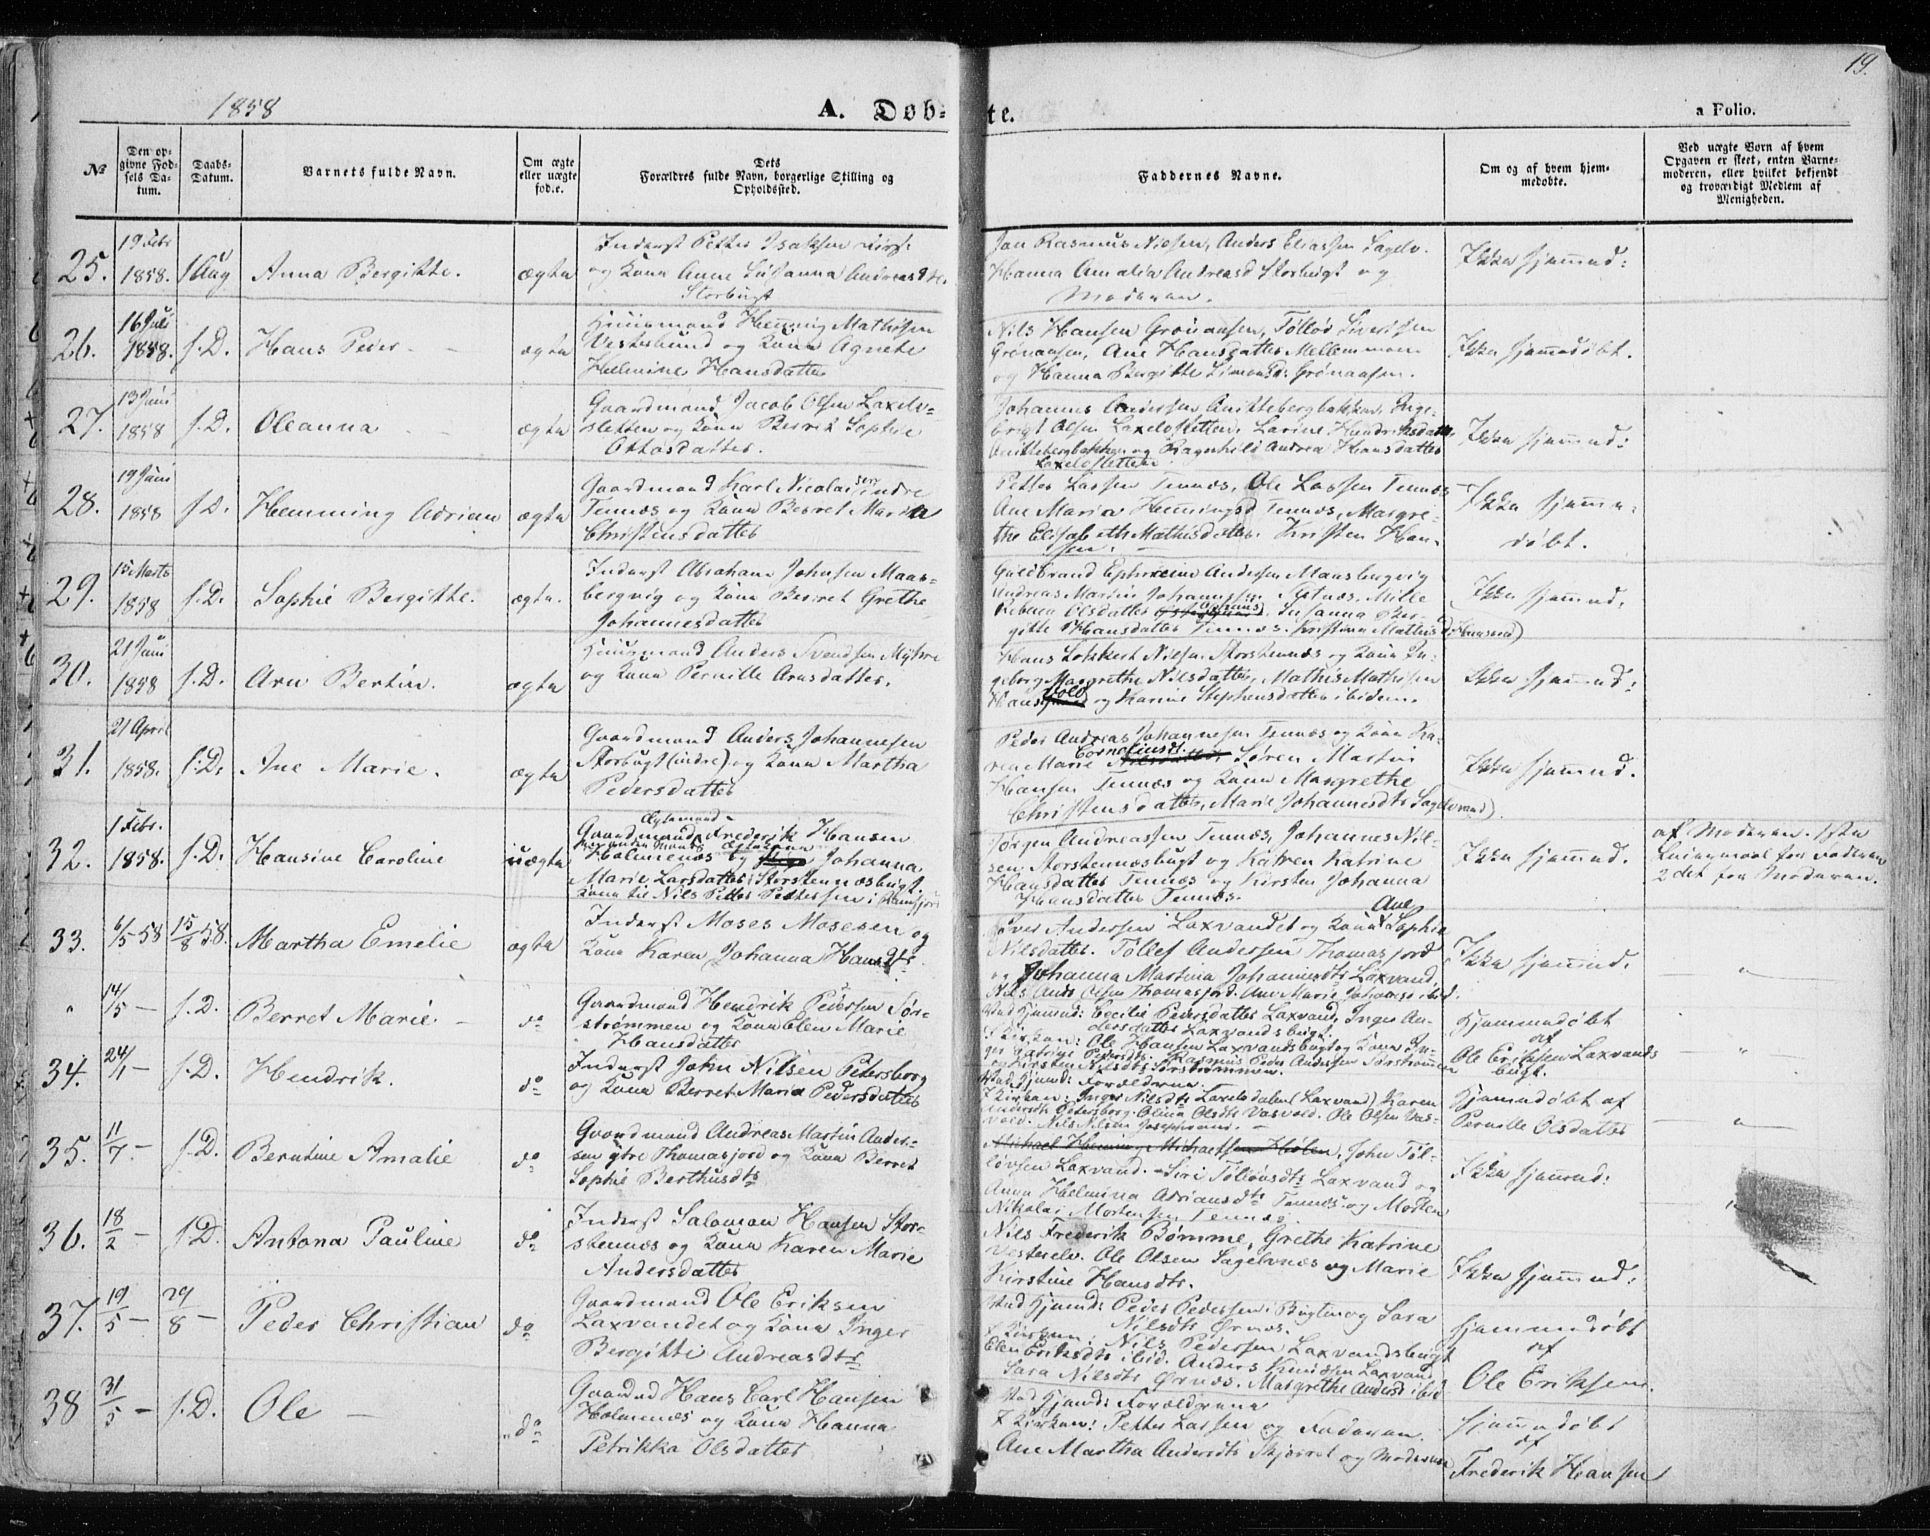 1858
A. Døb-
te.
19.
a Folio.
№
Den op-
givne Fød-
sels Da-
tum.
Daabs-
Datum.
Barnets fulde Navn.
Om ægte
eller uægte
fød.e.
Dets
Forældres fulde Navn, borgerlige Stilling og
Opholdssted.
Faddernes Navne.
Om og af hvem hjem-
medøbte.
Ved uægte Børn af hvem
Opgaven er skeet, enten Barne-
moderen, eller hvilket bekjendt
og troværdigt Medlem af
Menigheden.
25.
19 Febr
1858.
1 Aug
Anna Bergitte.
ægte
Inderst Petter Isaksen
og Kone Anne Susanna Andreasd
Storbugt
Jan Rasmus Nielsen, Anders Eliassen Sagelv.
Hanna Amalia Andreasd Storbugt og
Moderen.
Ikke hjemmed:
26.
16 Juli
1858.
s.D.
Hans Peder
ægte
Huusmand Hemmig Mathisen
Vesterlund og Kone Agnete
Helmine Hansdatter
Nils Hansen Grønaasen, Tøllef Sivertsen
Grønaasen, Ane Hansdatter Mellemmoen
og Hanna Bergitte Simonsd: Grønaasen.
Ikke hjemmedøbt.
27.
13 Juni
1858
s.D.
Oleanna
ægte
Gaardmand Jacob Olsen Laxelv-
sletten og Kone Berret Sophie
Ottosdatter.
Johannes Andersen Anittebergbakken, Inge-
brigt Olsen Laxelvsletten, Larine Hendriksdatter
Anittebergbakken og Ragnhild Andrea Hansdatter
Laxelvsletten
Ikke hjemmed:
28.
19 Juni
1858
s.D.
Hemming Adrian
ægte
Gaardmand Karl Nicolaisen Indre
Tennæs og Kone Berret Maria
Christensdatter
Petter Larsen Tennæs, Ole Larsen Tennæs
Ane Maria Hemmingsd Tennæs, Margre-
the Elisabeth Mathisdatter. Kristen Han-
sen.
Ikke hjemme-
døbt.
29.
15 Marts
1858
s.D.
Sophie Bergitte.
ægte.
Inderst Abraham Johnsen Maas-
bergvig og Kone Berret Grethe
Johannesdatter
Guldbrand Ephraim Andersen Mansbergvig
Andreas Martin Johannessen, Mille
Rebecca Olsdatter, Susanna Ber-
gitte Hansdatter Tennæs. Kristina Mathisd
Ikke hjemmed,
30.
21 Juni
1858
s.D.
Arn Bertin.
ægte
Huusmand Anders Svendsen Myhre
og Kone Pernille Arnsdatter.
Hans Lokkert Nilsen Storstennæs og Kone In-
geborg Margrethe Nilsdatter, Mathis Mathisen
og Karine Stephensdatter ibidem.
Ikke hjemmed:
31.
21 April
1858.
s.D.
Ane Marie.
ægte
Gaardmand Anders Johannesen
Storbugt (indre) og Kone Martha
Pedersdatter
Peder Andreas Johannesen Tennæs og Kone Ka-
Corneliusdt.
ren Marie Nilsdatter Søren Martin
Hansen Tennæs og Kone Margrethe
Christensdatter, Marie Johannesdtr Sagelvvand).
Ikke hjemmed.
32.
1 Febr.
1858.
s.D.
Hansine Caroline
uægte
Ægtemand
Gaardmand Frederik Hansen
Holmenæs og Johanna
Marie Larsdatter Storstennæsbugt.
Kone til Nils Petter Pettersen i
Jørgen Andreassen Tennæs, Johannes Nil-
sen, Storstennæsbugt og Katren Katrine
Hansdatter Tennæs og Kirsten Johanna
Hansdatter Tennæs.
Ikke hjemmed.
af Moderen. 1ste
Leiermaal for Faderen
2det for Moderen.
33.
6/5 58
15/8 58.
Martha Emelie
ægte
Inderst Moses Mosesen og
Kone Karen Johanna Hansdtr.
Ane
Iver Andersen Laxvandet og Kone Sophie
Nilsdatter. Tollef Andersen Thomasjord
og Johanna Martina Johannesdtr Laxvand,
Nils Ands Olsen Thomasjord. Ane Marie Johannesd ibid.
Ikke hjemmed.
"
"
14/5 —
s.D.
Berret Marie.
do
Gaardmand Hendrik Pedersen Sør-
strømmen og Kone Elen Marie
Hansdatter
Ved Hjemmed: Cecilie Pedersdatter Laxvand, Inger An-
dersdatter Laxvandsbugt.
I Kirken: Ole Hansen Laxvandsbugt og Kone In-
ger Katrine Pedersdt. Rasmus Peder Andersen Sørstrømmen
og Kirsten Nilsdtr Sørstrømmen.
Hjemmedøbt
af
Ole Eriksen Laxvands
bugt.
"
34.
24/1 —
s.D.
Hendrik.
do
Inderst John Nilsen Petersborg
og Kone Berret Maria Pedersdatter
Ved Hjemmed: Forældrene.
I Kirken: Inger Nilsdtr Laxelvdalen (Laxvand) Karen
Andersdtr Petersborg. Olina Olsdtr Vasvold. Ole Olsen Vas-
vold. Nils Nilsen Josephvand.
Hjemmedøbt af
Pernille Olsdatter
"
35.
11/7 —
s.D.
Berntine Amalie
do
Gaardmand Andreas Martin Ander-
sen ytre Thomasjord og Kone Berret
Sophie Berthusdtr
Michael Hemming Michaelsen Holen, John Tøl-
løvsen Laxvand. Siri Tølløvsdtr Laxvand og
Anna Helmina Adriansdtr Tennæs og Morten
Nikolai Mortensen Tennæs.
Ikke hjemmed:
36.
18/2 —
s.D.
Antona Pauline
do
Inderst Salomon Hansen Stor-
stennæs og Kone Karen Marie
Andersdatter
Nils Frederik Bømme, Grethe Katrine
Vesterelv. Ole Olsen Sagelvnæs og Marie
Kirstine Hansdtr.
Ikke hjemmed:
37.
19/5 —
29/8 —
Peder Christian
do
Gaardmand Ole Eriksen
Laxvandet og Kone Inger
Bergitte Andreasdtr
Ved Hjemmed: Peder Pedersen i Bugten og Sara
Nilsdtr Ørnæs.
I Kirken: Nils Pedersen Laxvandsbugt
Elen Eriksdtr ibid. Anders Knudsen Laxvand
Sara Nilsdtr Ørnæs. Margrethe Andersd ibid
Hjemmedøbt
af
Ole Eriksen.
38
31/5 —
s.D.
Ole —
do
Gaardmd Hans Carl Hansen
Holmenæs og Kone Hanna
Petrikka Olsdatter
Ved Hjemmed: Forældrene
I Kirken: Petter Larsen og Faderen.
Ane Martha Andersdtr Skjævel og Moderen
Hjemmedøbt
af
Frederik Hansen